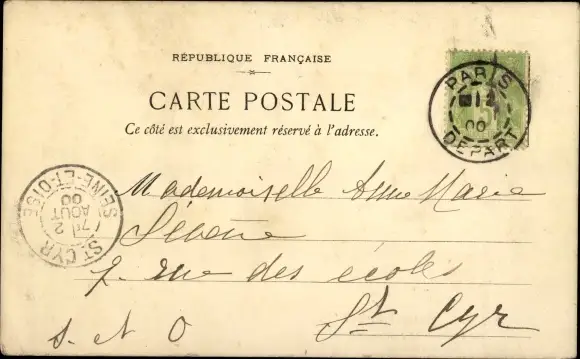 RÉPUBLIQUE FRANÇAISE
CARTE POSTALE
Ce côté est exclusivement réservé à l'adresse.
PARIS
12
00
DÉPART
Mademoiselle Anne Marie
rue des écoles
St Cyr
S. et O
ST. CYR
7E
2
AOUT
00
SEINE-ET-OISE